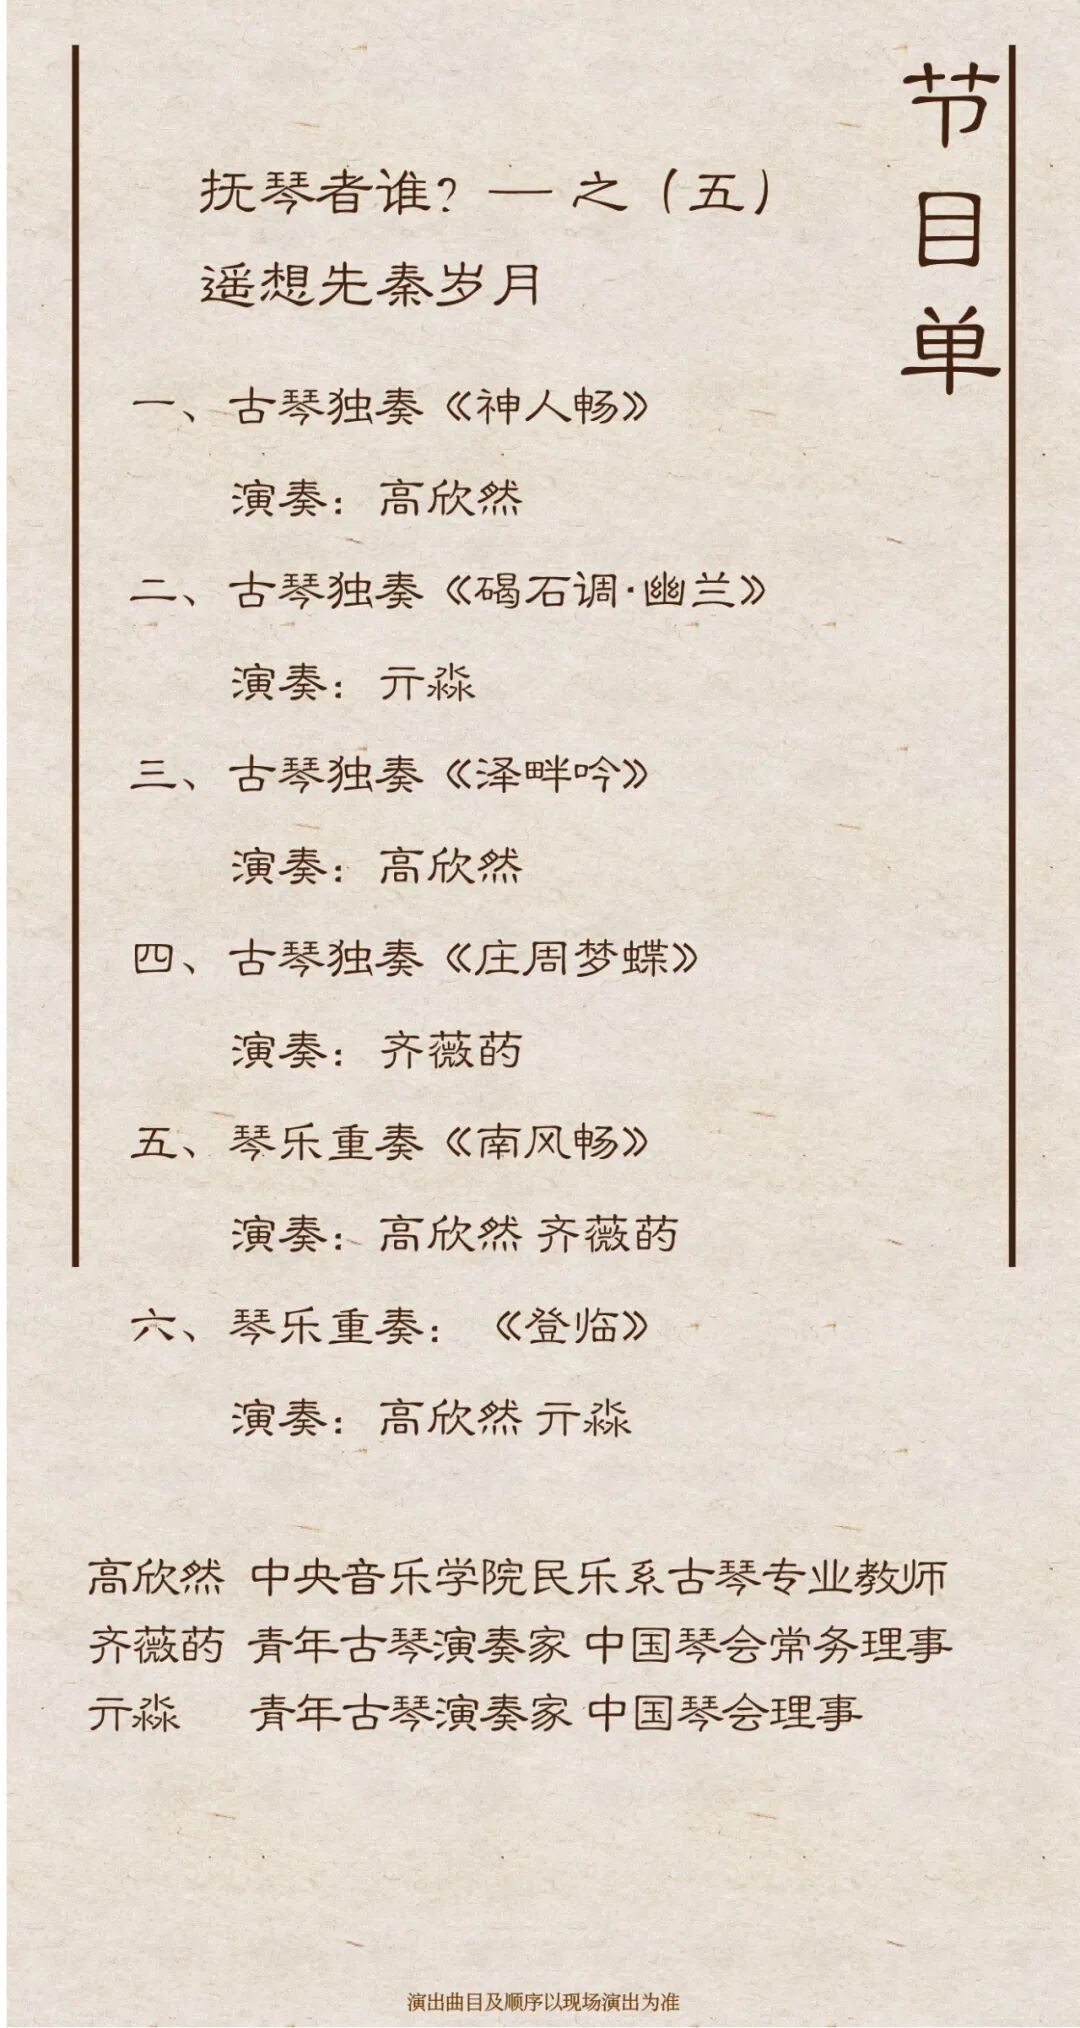 节目单
抚琴者谁？— 之（五）
遥想先秦岁月
一、古琴独奏《神人畅》
演奏：高欣然
二、古琴独奏《碣石调·幽兰》
演奏：亓淼
三、古琴独奏《泽畔吟》
演奏：高欣然
四、古琴独奏《庄周梦蝶》
演奏：齐薇菂
五、琴乐重奏《南风畅》
演奏：高欣然 齐薇菂
六、琴乐重奏：《登临》
演奏：高欣然 亓淼
高欣然 中央音乐学院民乐系古琴专业教师
齐薇菂 青年古琴演奏家 中国琴会常务理事
亓淼 青年古琴演奏家 中国琴会理事
演出曲目及顺序以现场演出为准